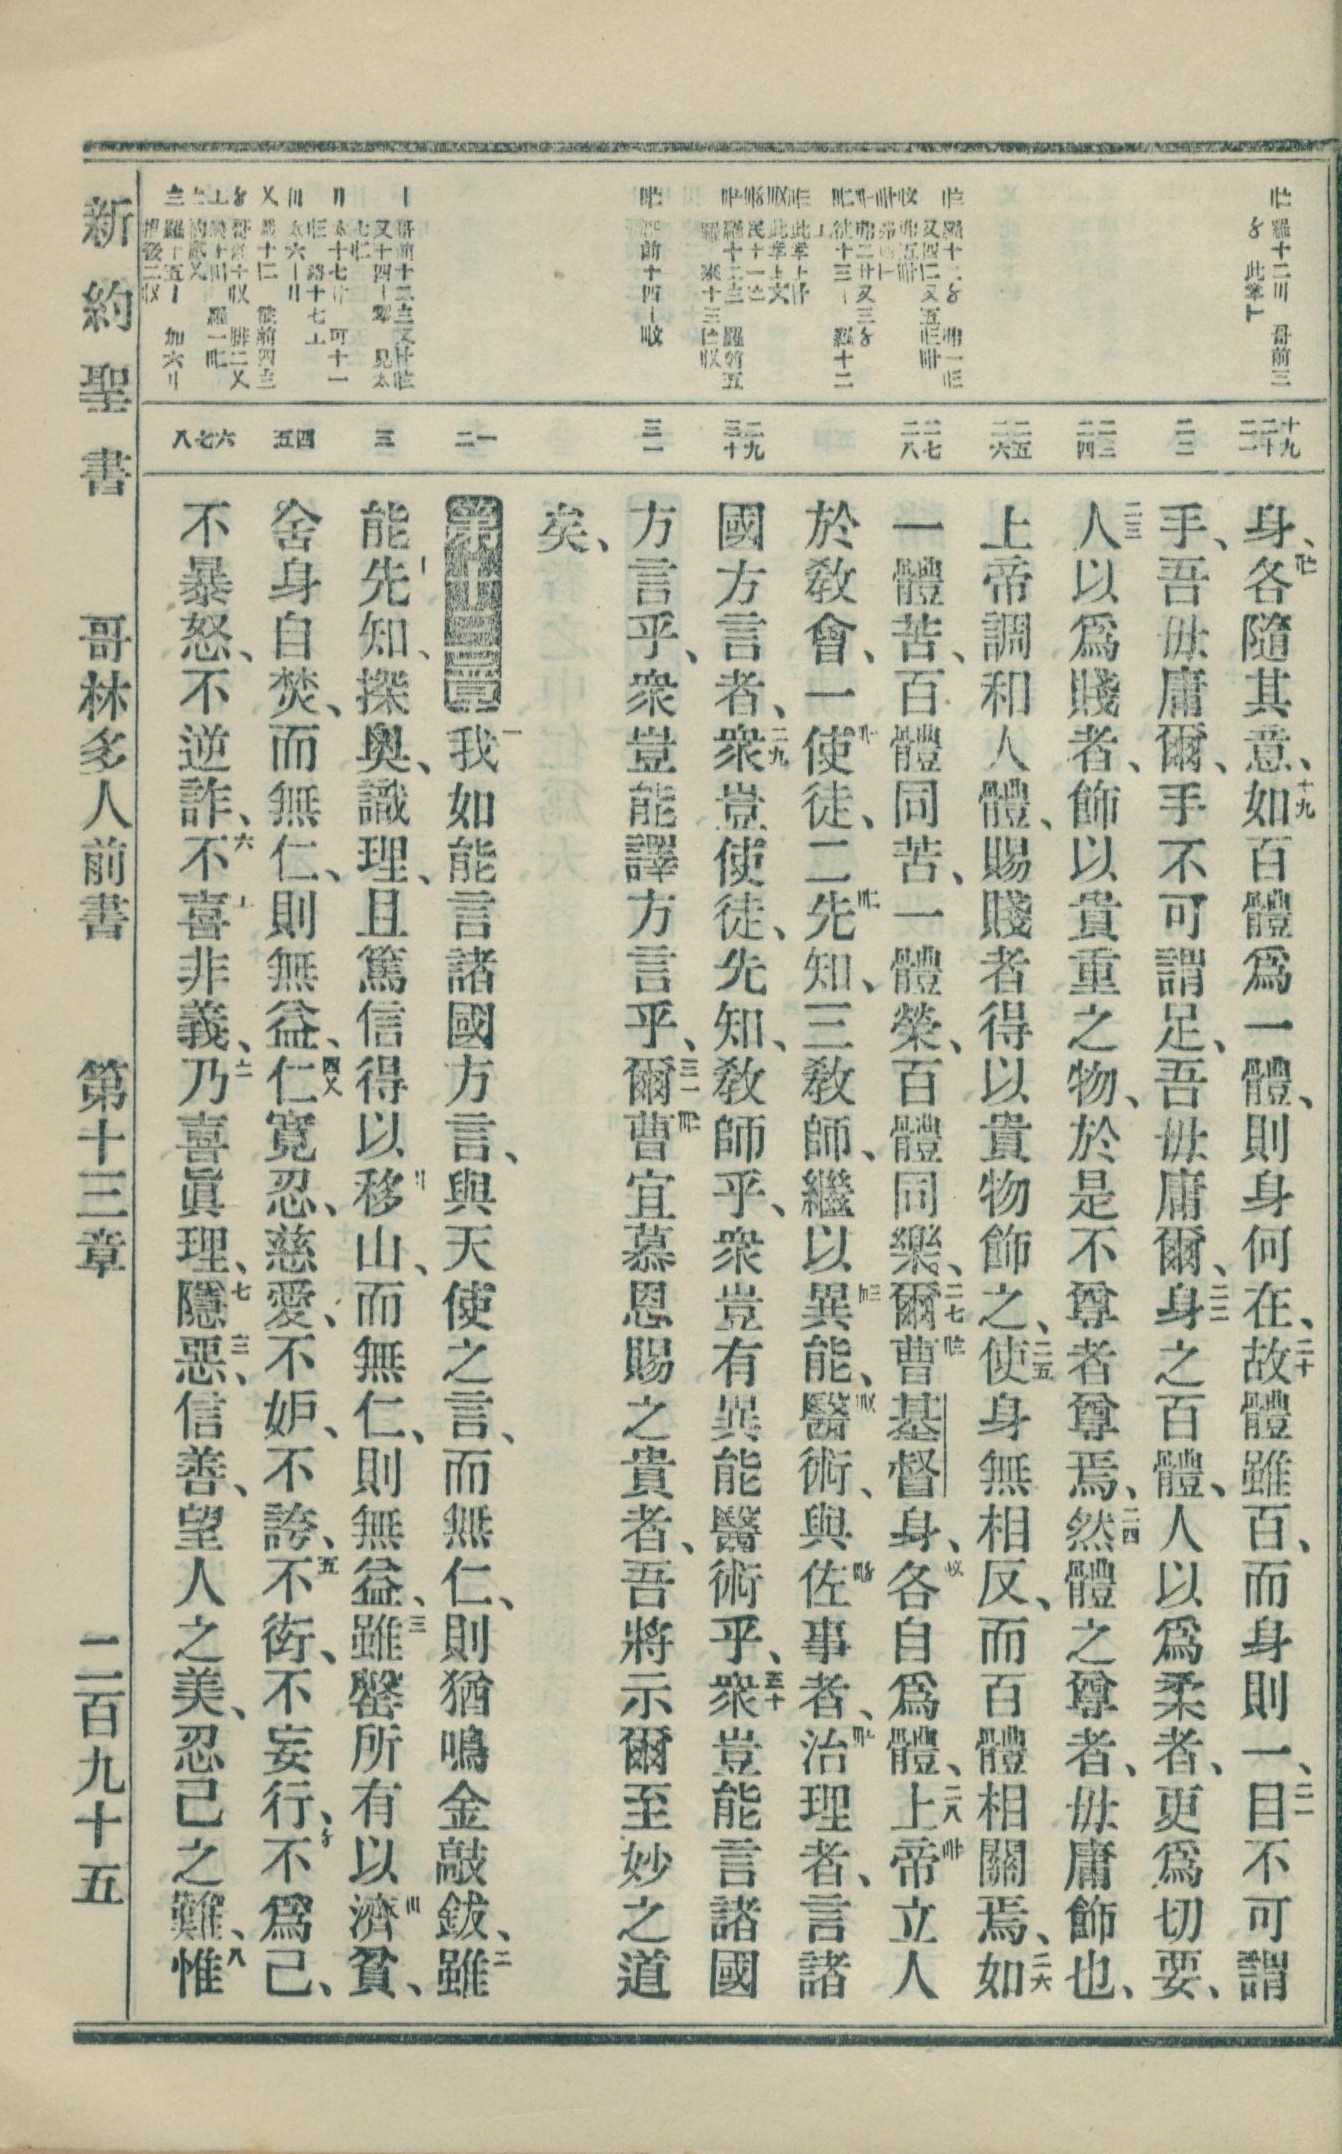 身、各隨其意、十九如百體爲一體、則身何在、二十故體雖百、而身則一、二一目不可謂
手、吾毋庸爾、手不可謂足、吾毋庸爾、二二身之百體、人以爲柔者、更爲切要、
二三人以爲賤者、飾以貴重之物、於是不尊者尊焉、二四然體之尊者、毋庸飾也、
上帝調和人體、賜賤者得以貴物飾之、二五使身無相反、而百體相關焉、二六如
一體苦、百體同苦、一體榮、百體同樂、二七爾曹基督身、各自爲體、二八上帝立人
於敎會、一使徒、二先知、三敎師、繼以異能、醫術、與佐事者、治理者、言諸
國方言者、二九衆豈使徒、先知、敎師乎、衆豈有異能醫術乎、三十衆豈能言諸國
方言乎、衆豈能譯方言乎、三一爾曹宜慕恩賜之貴者、吾將示爾至妙之道
矣、
第十三章 一我如能言諸國方言、與天使之言、而無仁、則猶鳴金敲鈸、二雖
能先知、探奧、識理、且篤信得以移山、而無仁、則無益、三雖罄所有以濟貧、
舍身自焚、而無仁、則無益、四仁寬忍、慈愛、不妒、不誇、五不衒、不妄行、不爲己、
不暴怒、不逆詐、六不喜非義、乃喜眞理、七隱惡、信善、望人之美、忍己之難、八惟
新約聖書 哥林多人前書 第十三章 二百九十五